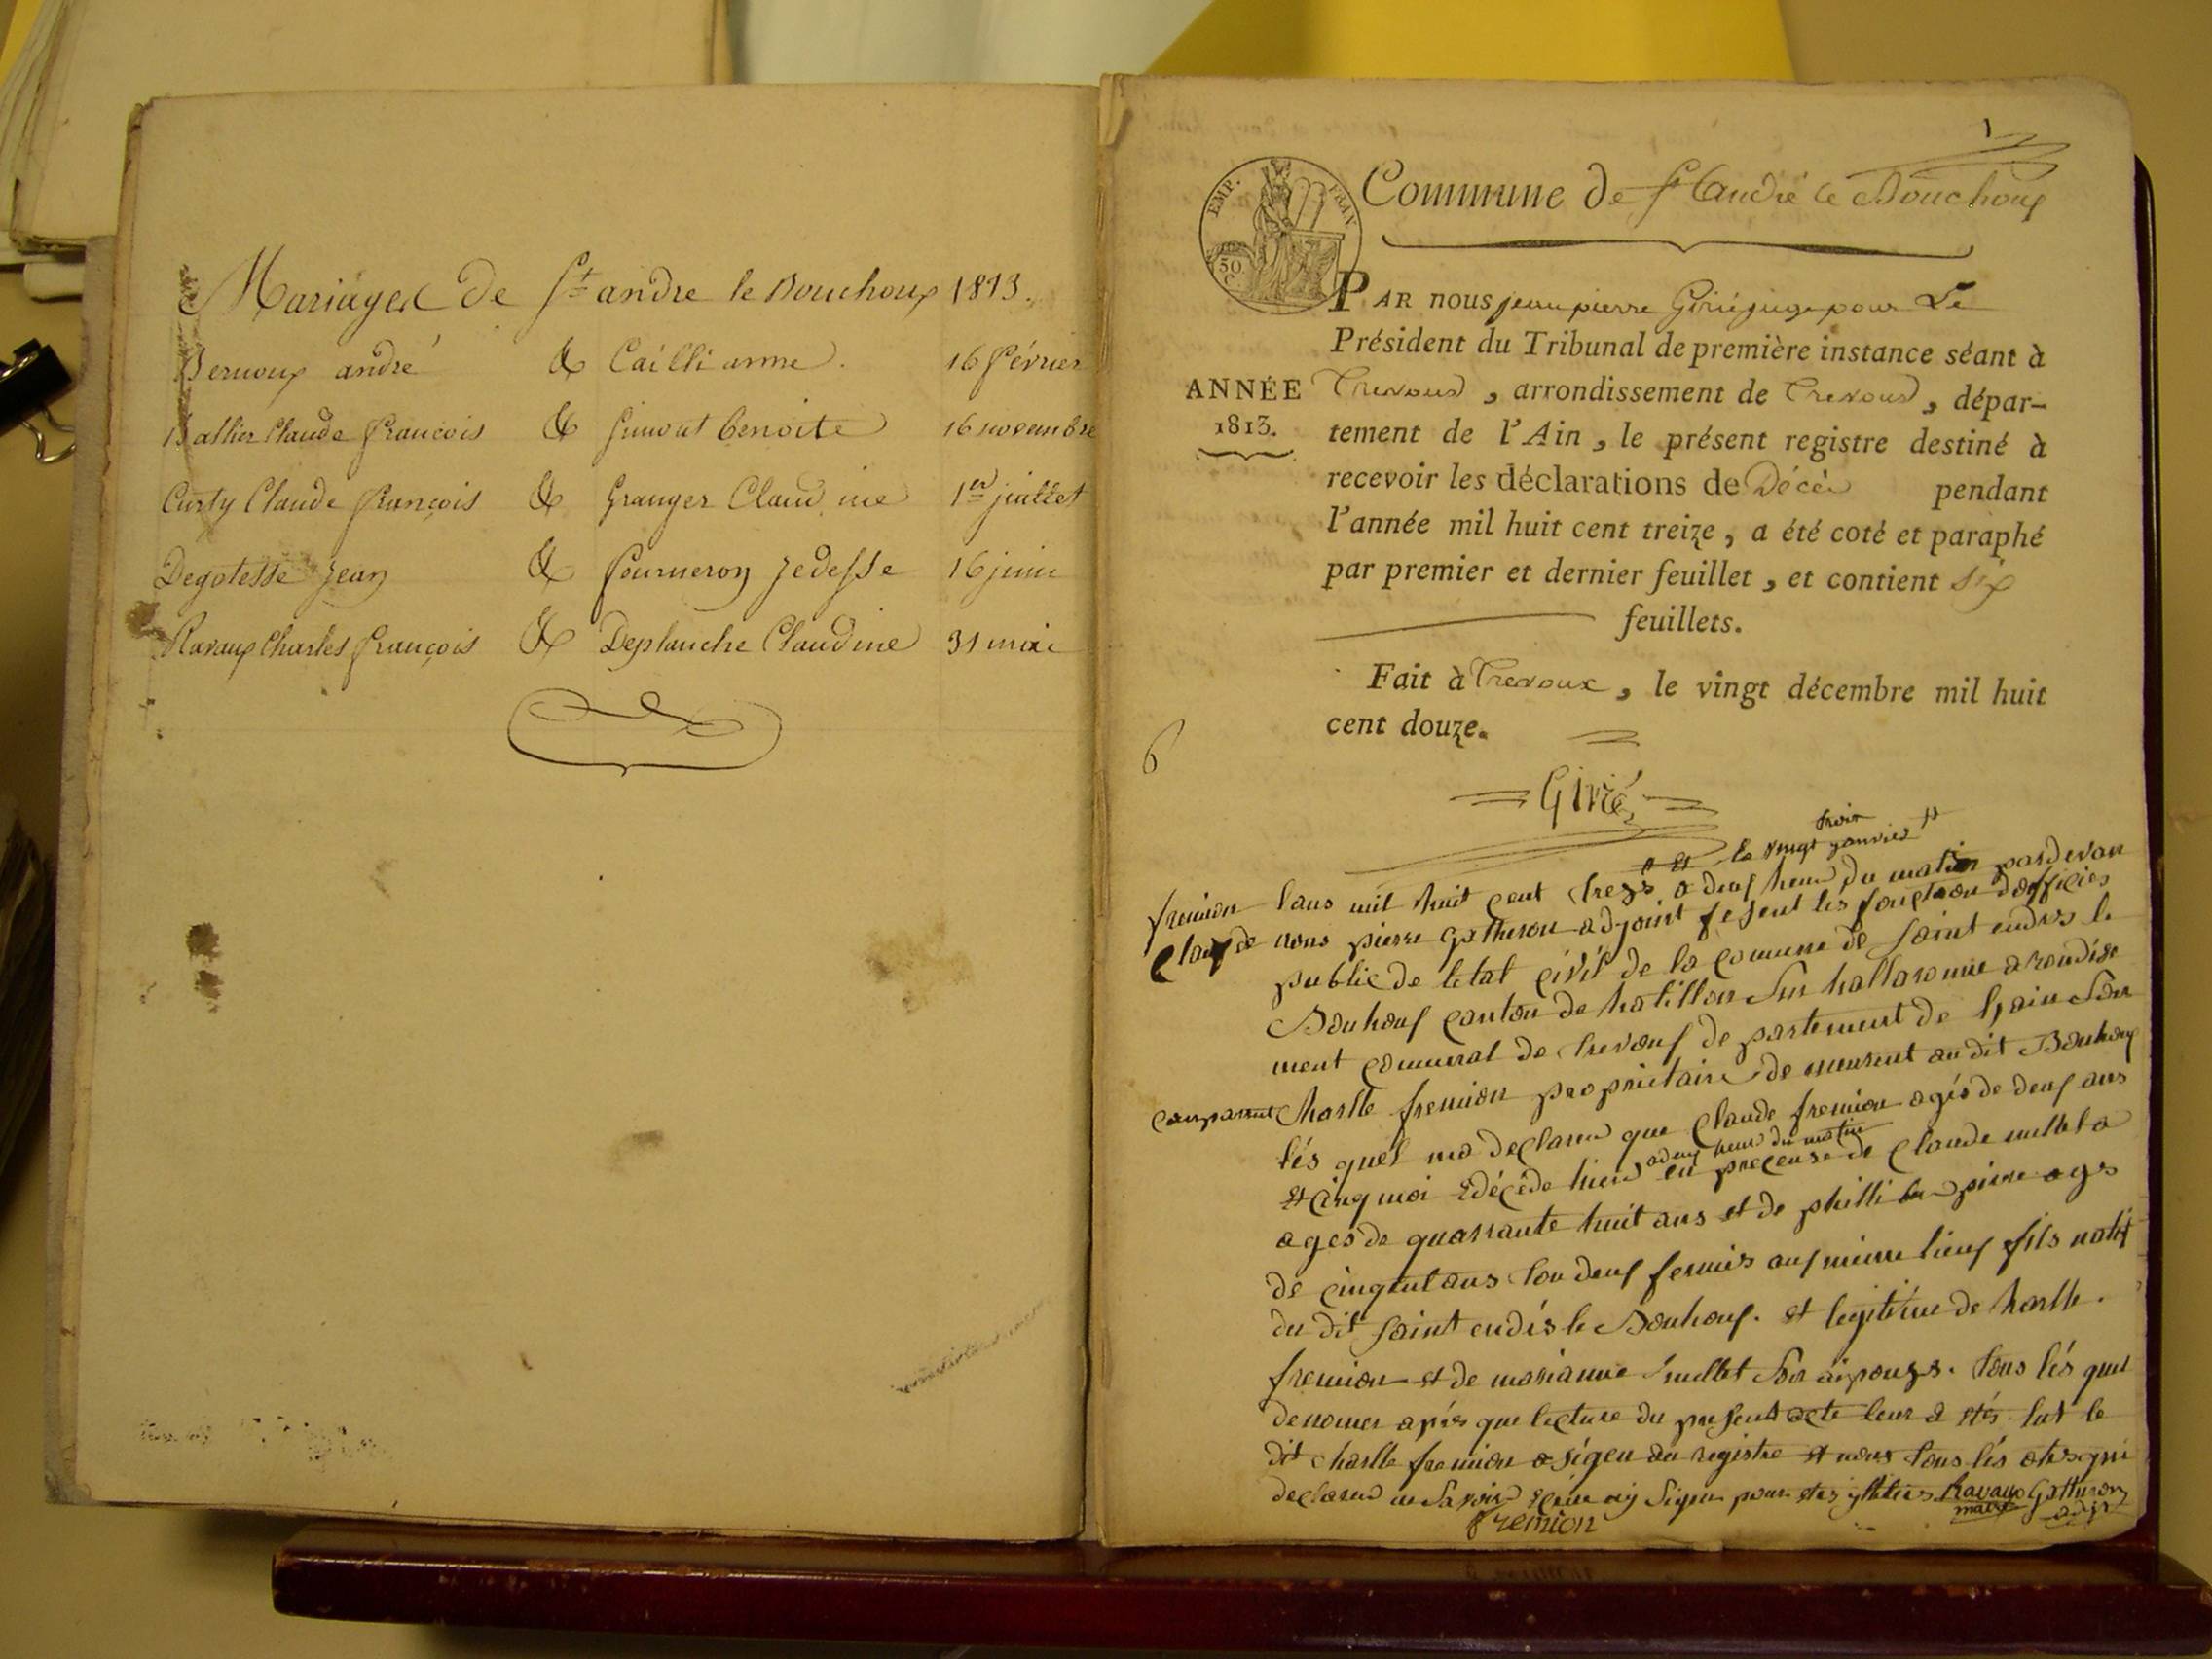 Mariages de St andre le Bouchoux 1813.
Bernoux andré & Cailli anne. 16 février
Bathier Claude françois & benoite 16 novembre
Curty Claude françois & Granger Claudine 1er juillet
Degoteste Jean & fourneron 16 juin
Ravaux Charles françois & Deplanche Claudine 31 mai
1
EMP. FRAN
50 C
Commune de St andré le Bouchoux
PAR nous jean pierre Girié juge pour Le
Président du Tribunal de première instance séant à
ANNÉE 1813.
Trevoux, arrondissement de Trevoux, dépar-
tement de l'Ain, le présent registre destiné à
recevoir les déclarations de Décès pendant
l'année mil huit cent treize, a été coté et paraphé
par premier et dernier feuillet, et contient six
feuillets.
Fait à Trevoux, le vingt décembre mil huit
cent douze.
6
Girié
et le vingt trois janvier
fremion
Claude
lans mil huit cent treze a deux heure du matin pardevan
nous pierre gatheron adjoint fesent les fonction dofficies
public de letat civil de la comune de saint endres le
Bouhoux canton de hatillon sur hallaronne arondise
ment comunal de trevoux de partement de lyain
comparent
harlle fremion proprietaire de meurent au dit Bouhoux
lés quel ma declareu que Claude fremion agés de deux ans
et cinq moi décéde hier a deux heure du matin en precense de Claude millet a
ages de quarrante huit ans et de philli pierre age
de cinqent ans tou deux fermis aux meime lieux fils natif
du dit saint endrés le Bouhoux. et legitime de harlle.
fremion et de marianne millet son aipouze. tous lés quel
denomer aprés que lecture du present acte leur a etés lut le
dit charlle fremion a sigen au registre et nous tous lés otes qui
declareu ne savoir signer Ravaux maire Gatheron adjt
fremion